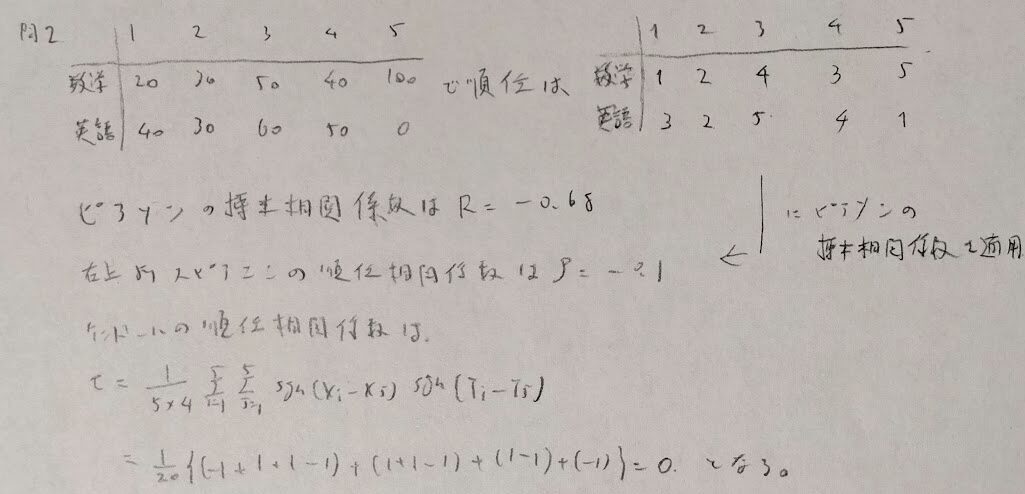 問2
1 2 3 4 5
数学 20 30 50 40 100
英語 40 30 60 50 0
で順位は
1 2 3 4 5
数学 1 2 4 3 5
英語 3 2 5 4 1
ピアソンの標本相関係数は R = -0.68
にピアソンの
標本相関係数を適用
←
右上よりスピアマンの順位相関係数は ρ = -0.1
ケンドールの順位相関係数は、
τ = 1/(5×4) Σ_{i=1}^{5} Σ_{j=1}^{5} sgn(Xi - Xj) sgn(Yi - Yj)
= 1/20 {(-1+1+1-1)+(1+1-1)+(1-1)+(-1)} = 0. となる。